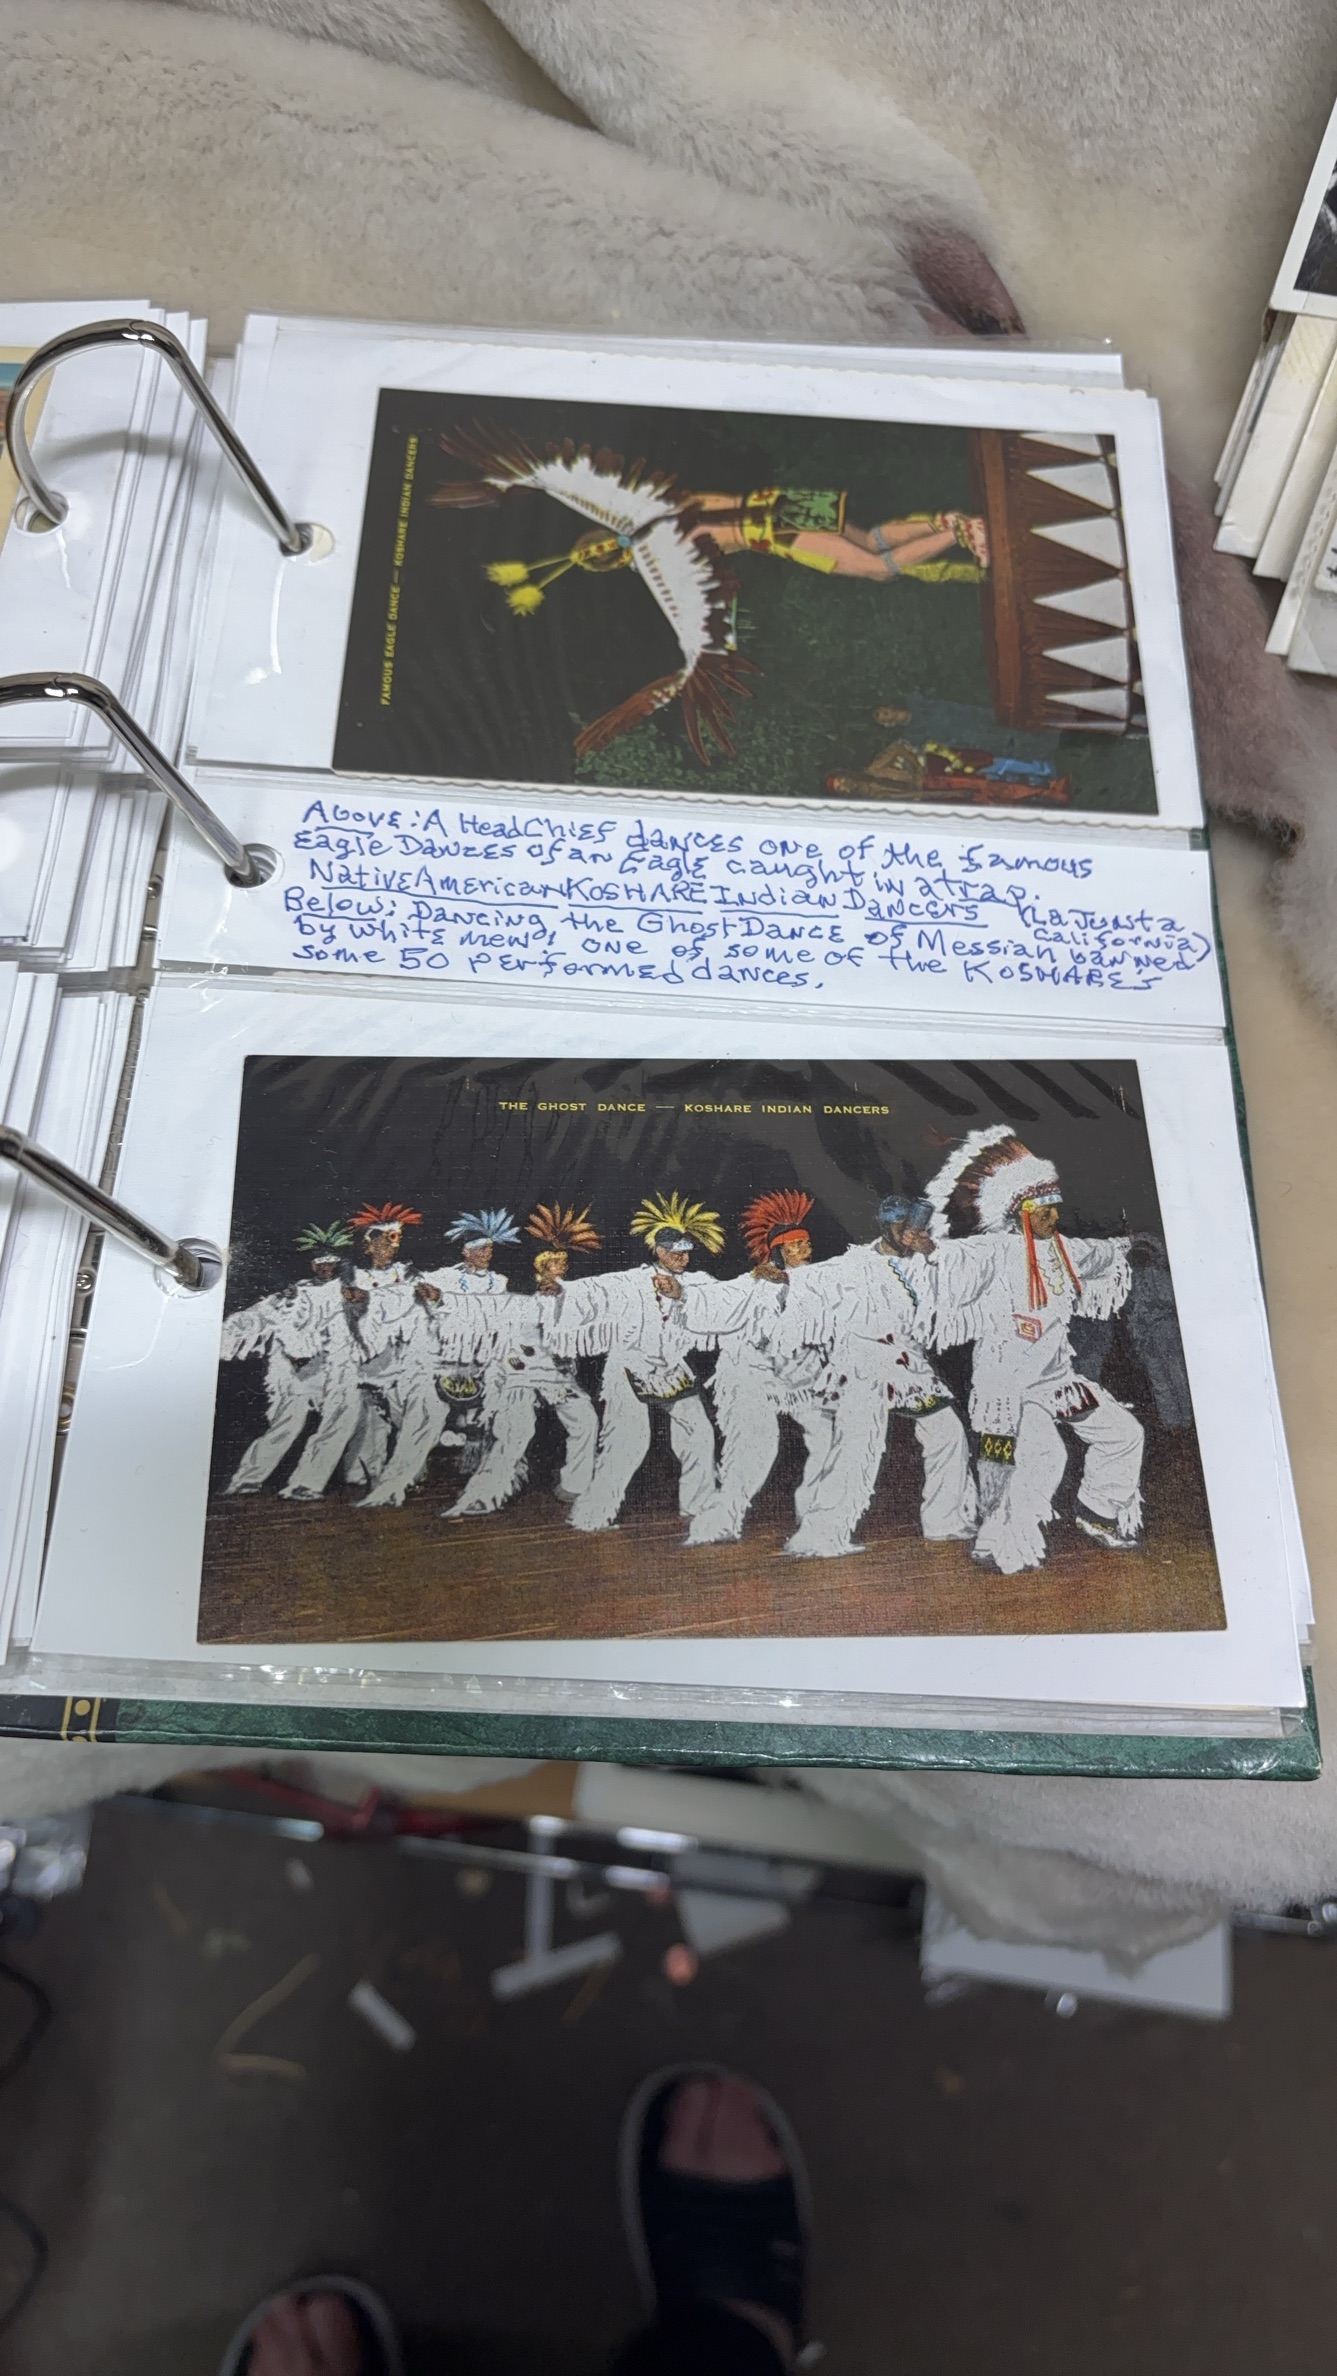 FAMOUS EAGLE DANCE — KOSHARE INDIAN DANCERS
Above: A Head Chief dances one of the famous
Eagle Dances of an Eagle caught in a trap.
Native American KOSHARE Indian Dancers (La Junta
California)
Below: Dancing the Ghost Dance of Messiah banned
by white men, one of some of the KOSHARE's
some 50 performed dances.
THE GHOST DANCE — KOSHARE INDIAN DANCERS